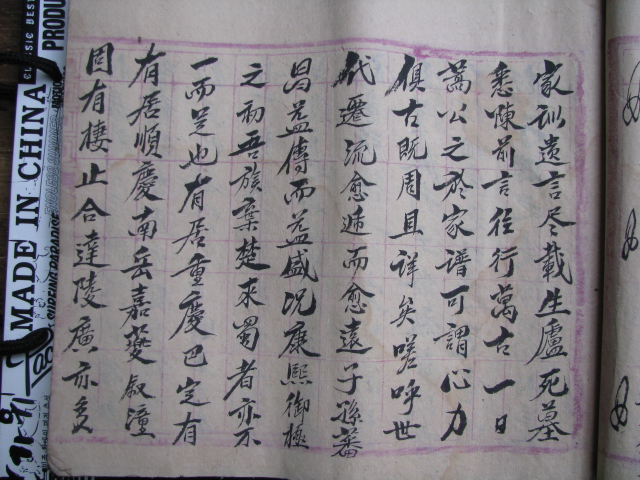 家训遗言尽载生廬死墓
悉陳前言往行萬古一日
嵩公之於家谱可謂心力
俱古既周且详矣嗟呼世
代遷流愈遁而愈遠子孫蕃
昌益傳而益盛况康熙御極
之初吾族棄楚来蜀者亦不
一而足也有居重慶巴定有
有居順慶南岳嘉夔叙潼
因有棲止合達陵廣亦多
MADE IN CHINA
CLASSIC DES
PRODU